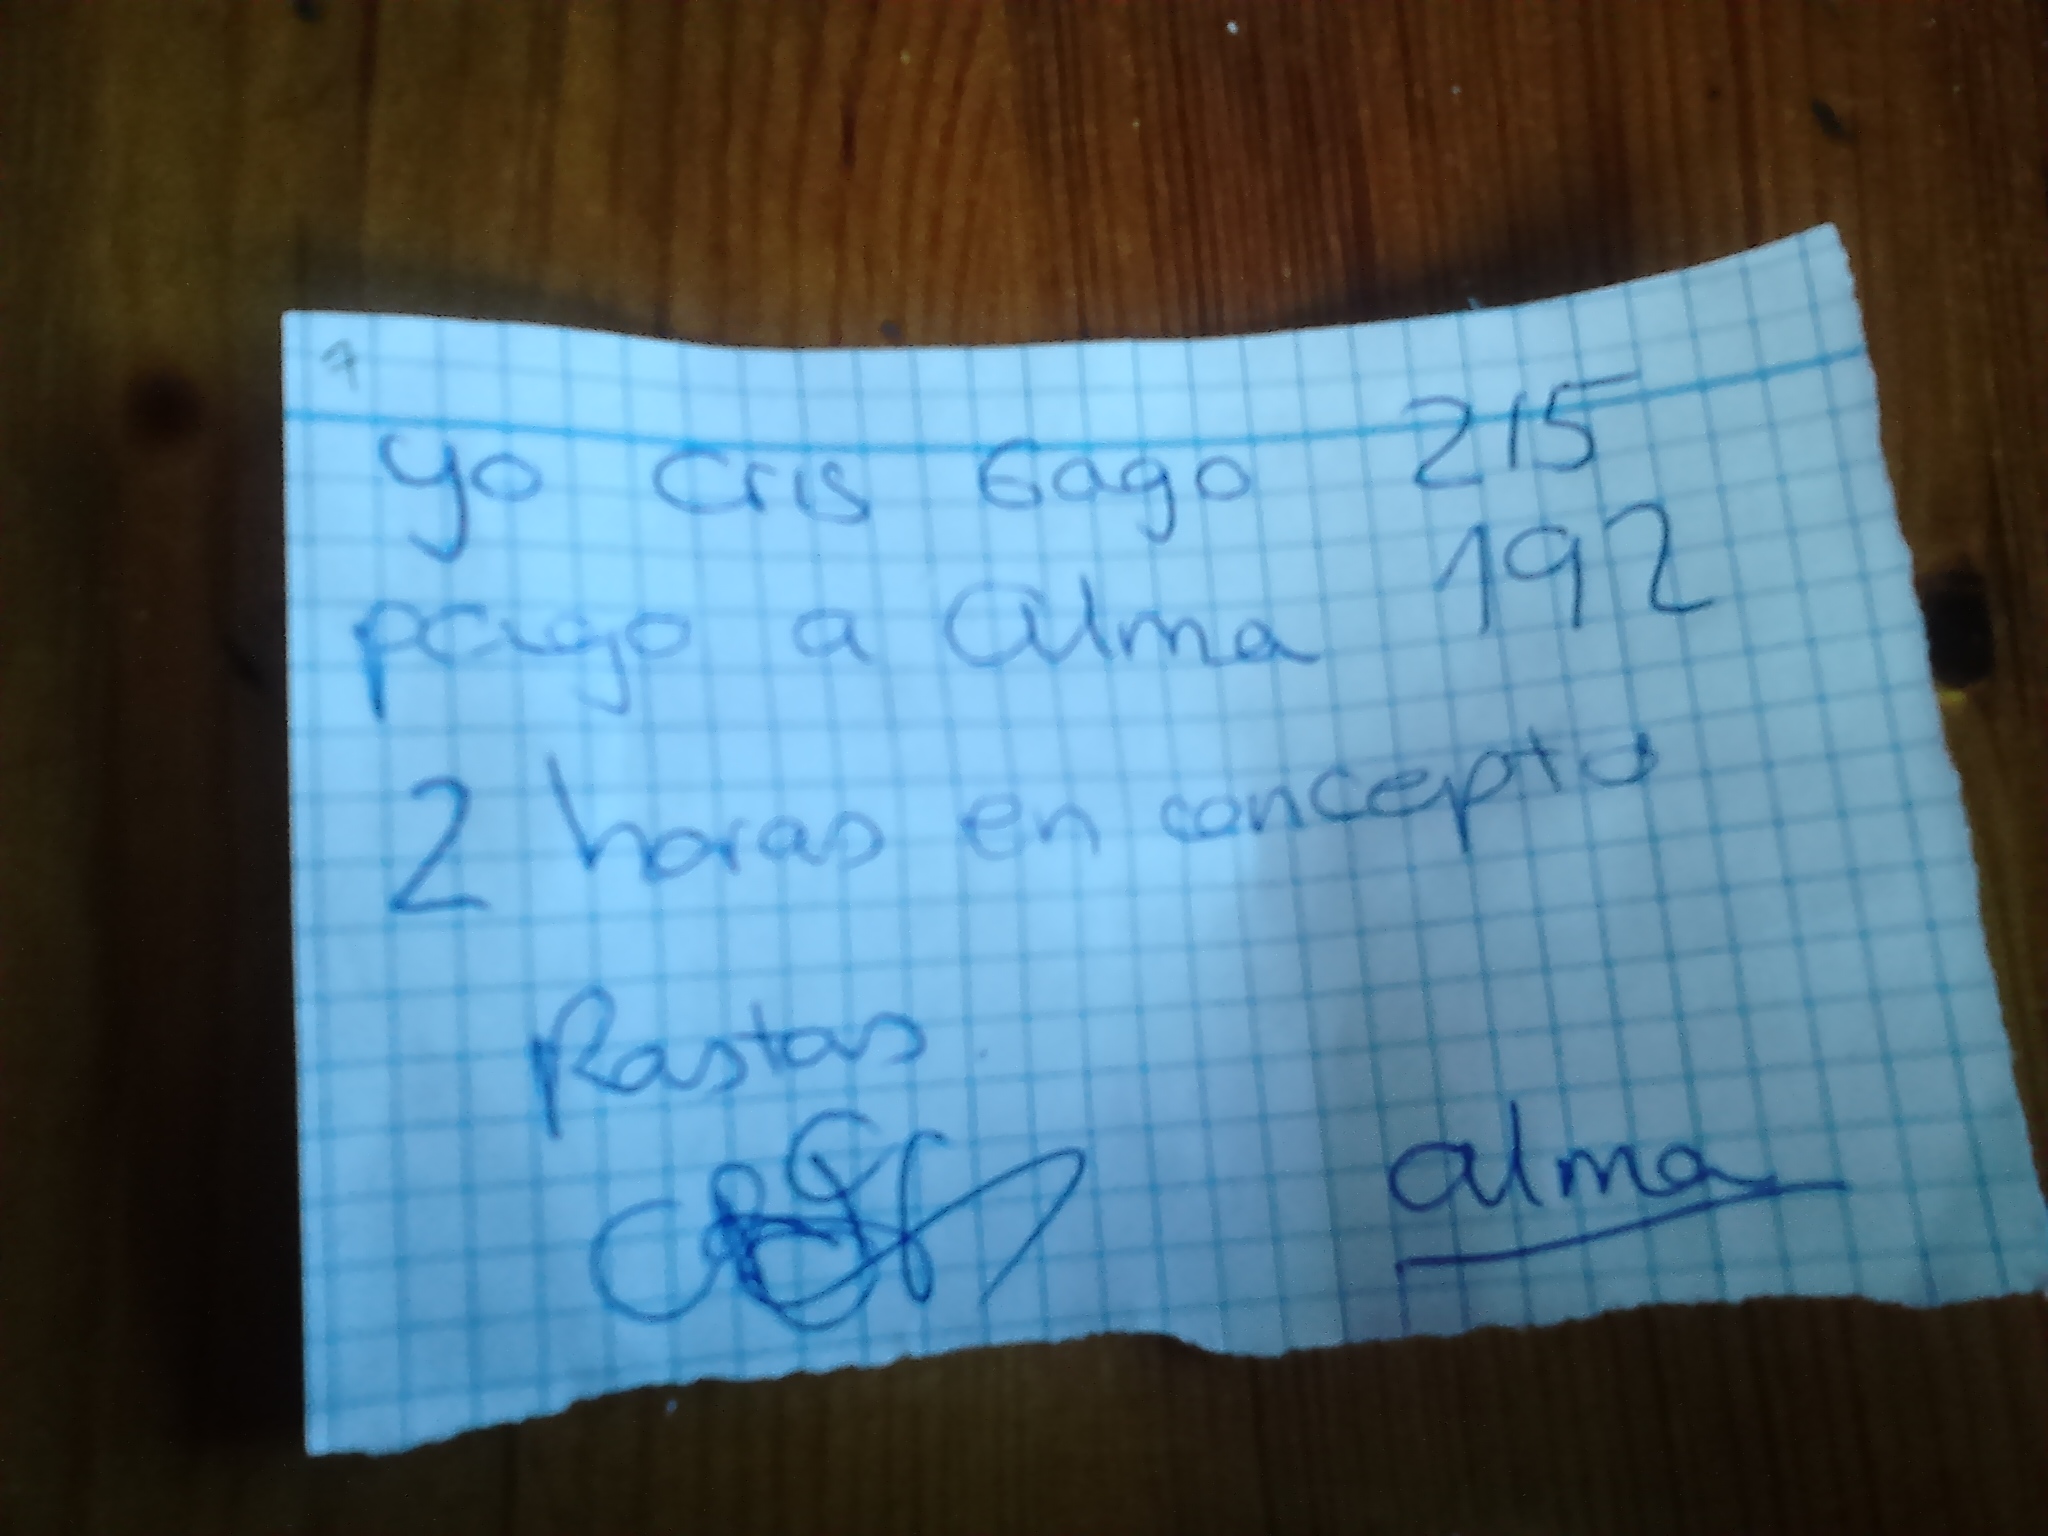 7
yo Cris Gago 215
pago a alma 192
2 horas en concepto
Rastas
alma